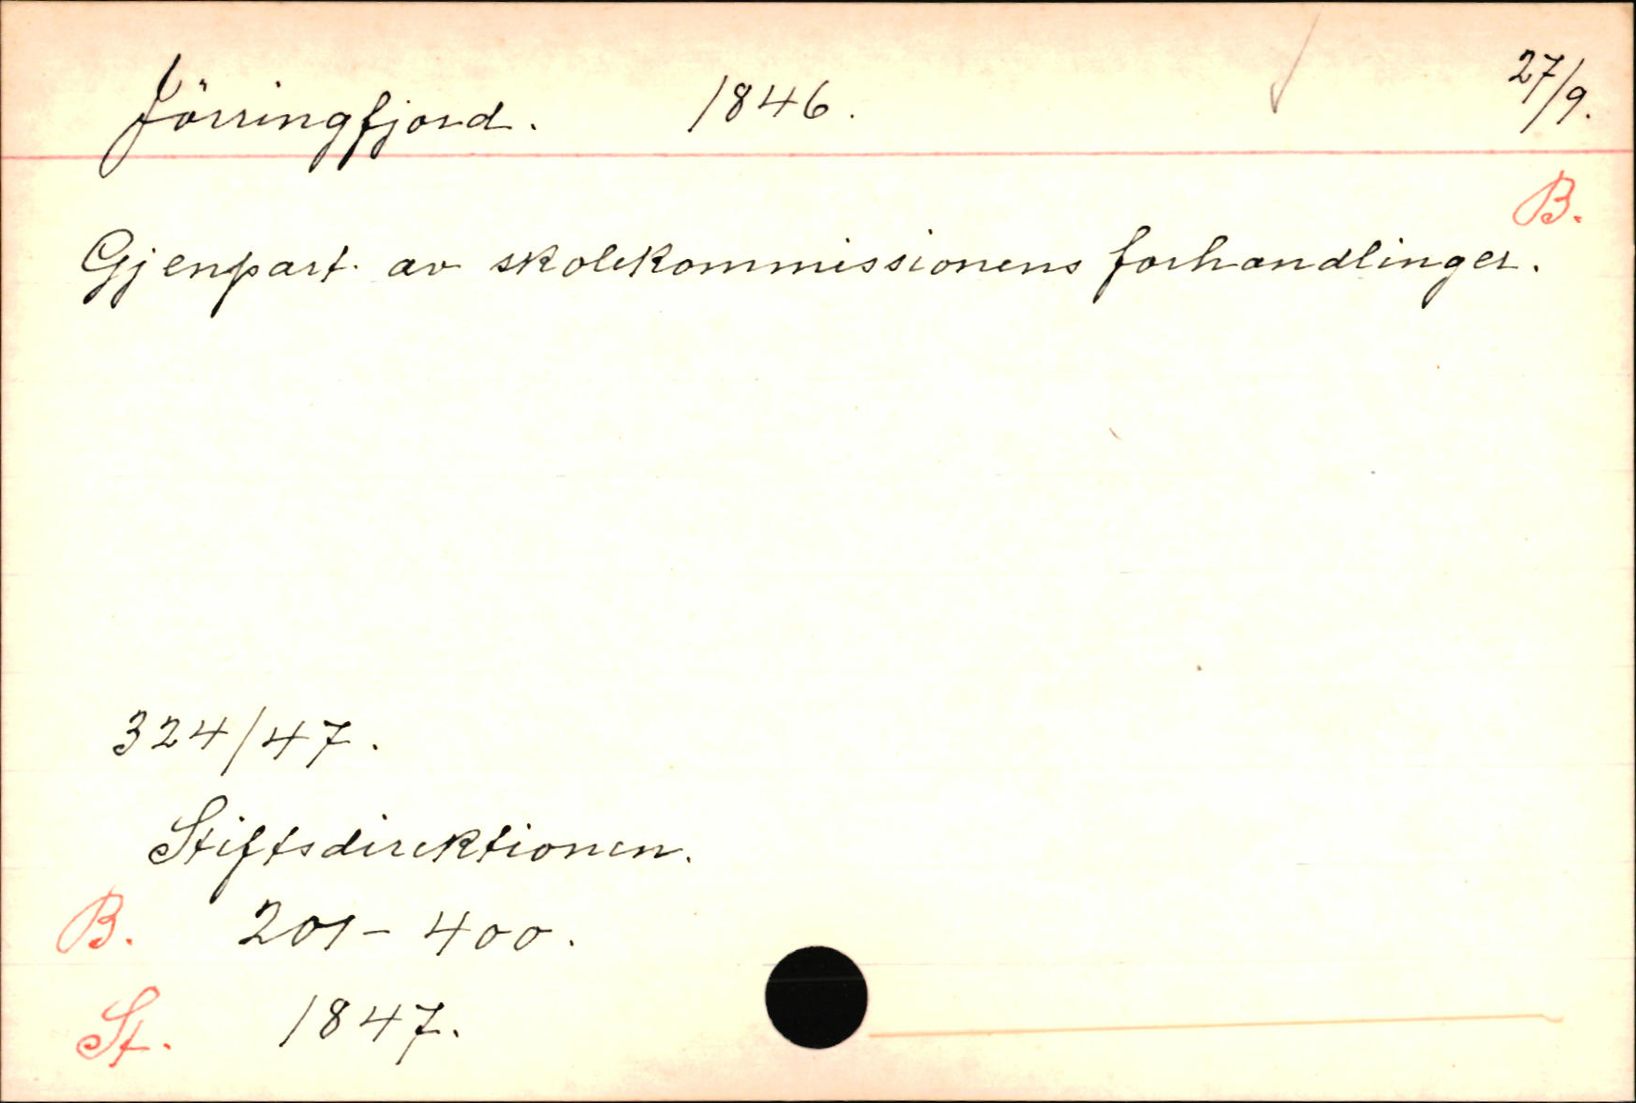 Jörringfjord. 1846. 27/9.
B.
Gjenpart. av skolekommissionens forhandlinger.
324/47.
Stiftsdirektionen.
B. 201-400.
St. 1847.